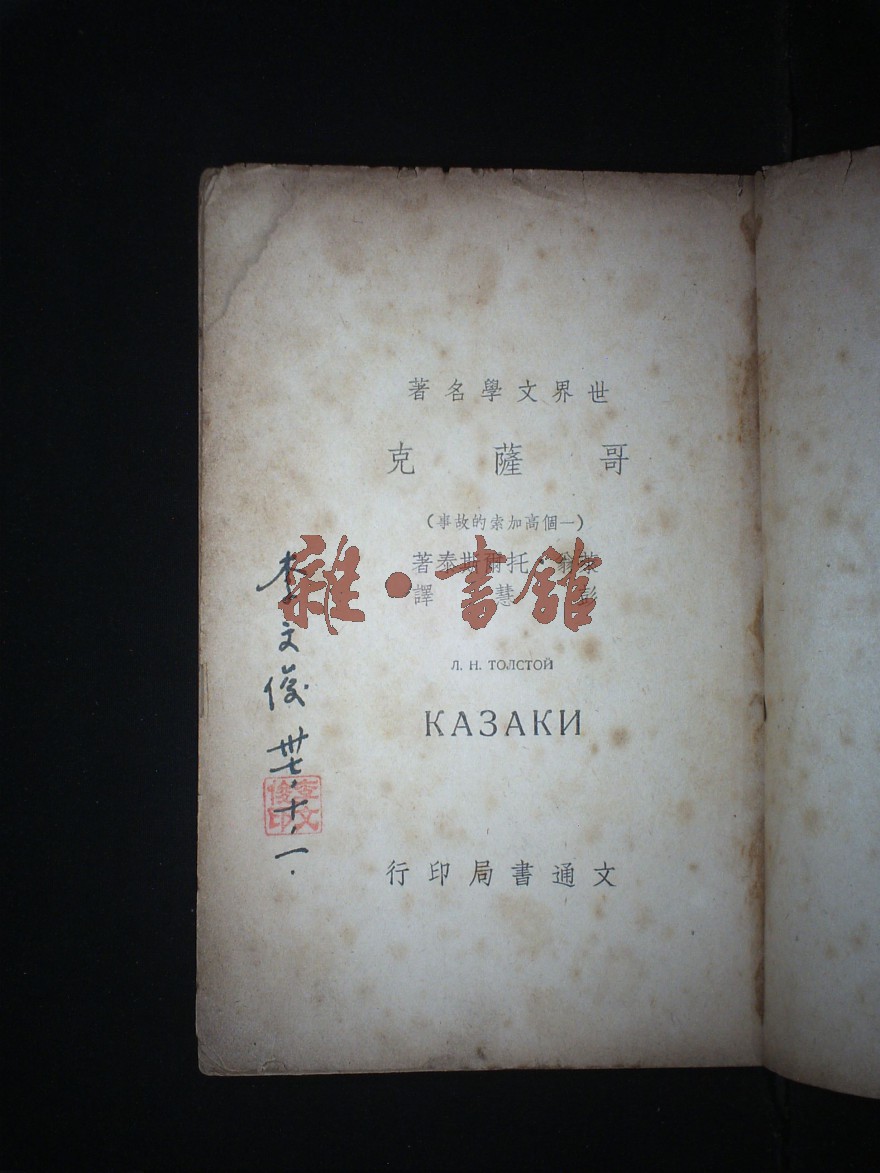 世界文學名著
哥薩克
(一個高加索的故事)
萊翁·托爾斯泰著
彭慧譯
Л. Н. ТОЛСТОЙ
КАЗАКИ
文通書局印行
李文俊 卅七.十.一.
李文俊印
雜·書館